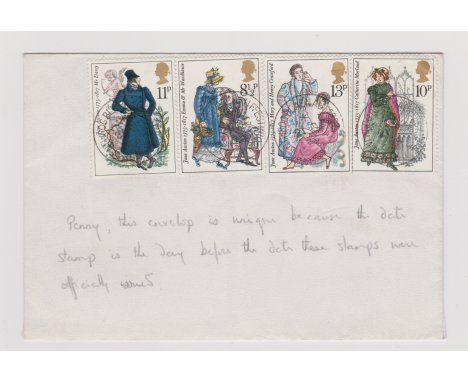 11P
Jane Austen 1775-1817 Mr Darcy
8½P
Jane Austen 1775-1817 Emma & Mr Woodhouse
13P
Jane Austen 1775-1817 Mary and Henry Crawford
10P
Jane Austen 1775-1817 Catherine Morland
Penny, this envelop is unique because the date
stamp is the day before the date these stamps were
officially issued.